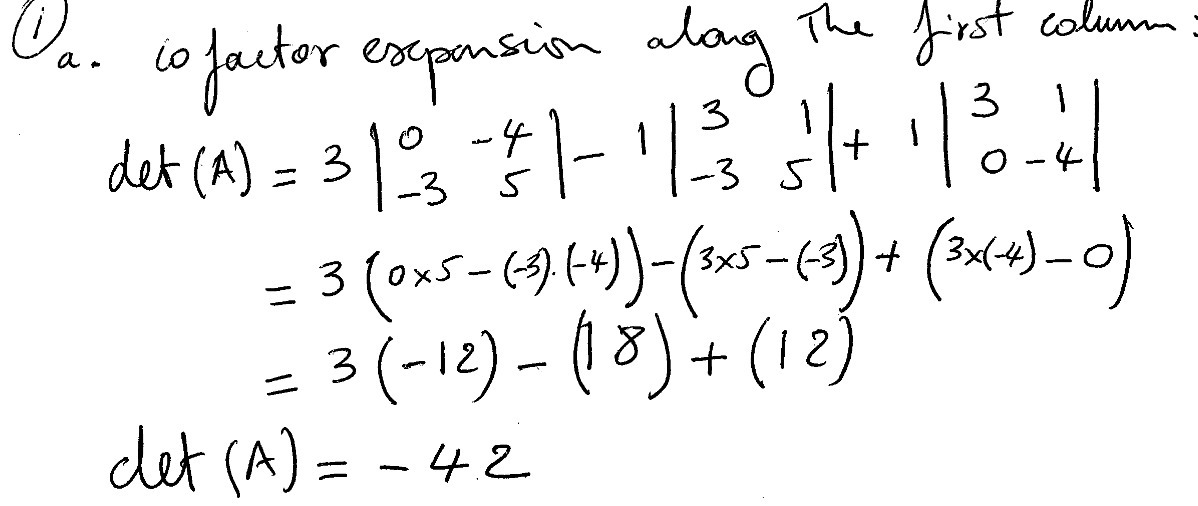 ① a. cofactor expansion along the first column:
det (A) = 3 | 0 -4 ; -3 5 | - 1 | 3 1 ; -3 5 | + 1 | 3 1 ; 0 -4 |
= 3 (0x5 - (-3).(-4)) - (3x5 - (-3)) + (3x(-4) - 0)
= 3 (-12) - (18) + (12)
det (A) = - 42